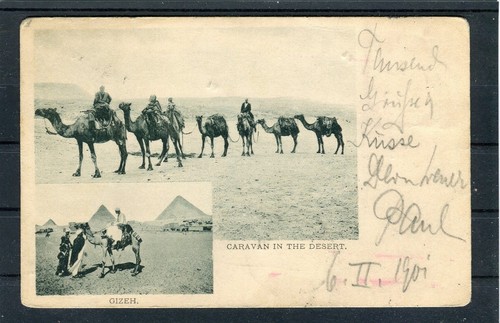 Tausend
Grüße
Küsse
Dein treuer
Paul
CARAVAN IN THE DESERT.
GIZEH.
6. II. 1901